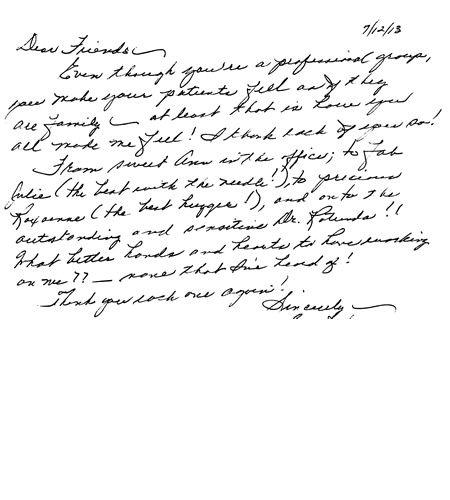 7/12/13
Dear Friends
Even though you're a professional group,
you make your patients feel as if they
are family - at least that is how you
all make me feel! I thank each of you so!
From sweet Ann in the office; to fab
Julie (the best with the needle!), to precious
Roxanne (the best hugger!), and onto the
outstanding and sensitive Dr. Rotunda!!
What better hands and hearts to have working
on me?? - none that I've heard of!
Thank you each one again!
Sincerely